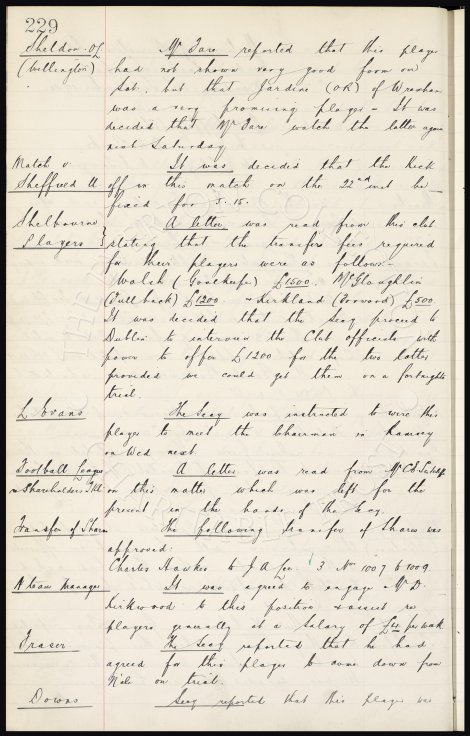 229
Sheldon. OL Mr Fare reported that this player
(Wellington) had not shown very good form on
Sat, but that Jardine (OR) of Wrexham
was a very promising player - It was
decided that Mr Fare watch the latter again
next Saturday
Match v It was decided that the Kick
Sheffield U off in this match on the 22nd inst be
fixed for 5.15.
Shelbourne A letter was read from this club
Players stating that the transfer fees required
for their players were as follows:-
Walsh (Goalkeeper) £1500. McGloughlin
(Fullback) £1200 & Kirkland (Forward) £500.
It was decided that the Secy proceed to
Dublin to interview the Club officials with
power to offer £1200 for the two latter
provided we could get them on a fortnights
trial.
L Evans The Secy was instructed to wire this
player to meet the Chairman in Ramsey
on Wed next.
Football League A letter was read from Mr C E Sutcliffe
& Shareholders on this matter which was left for the
present in the hands of the Secy.
Transfer of Shares The following transfer of shares was
approved:
Charles Hawkes to J A Lee 3 Nos 1007 to 1009.
A team Manager It was agreed to engage Mr D.
Kirkwood to this position & assist
players generally at a salary of per week.
Fraser The Secy reported that he had
agreed for this player to come down from
on trial.
Downs Secy reported that this player was